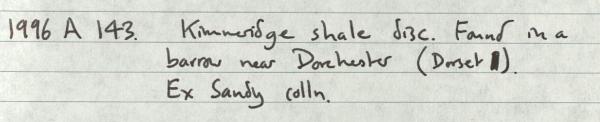 1996 A 143. Kimmeridge shale disc. Found in a
barrow near Dorchester (Dorset).
Ex Sandy colln.